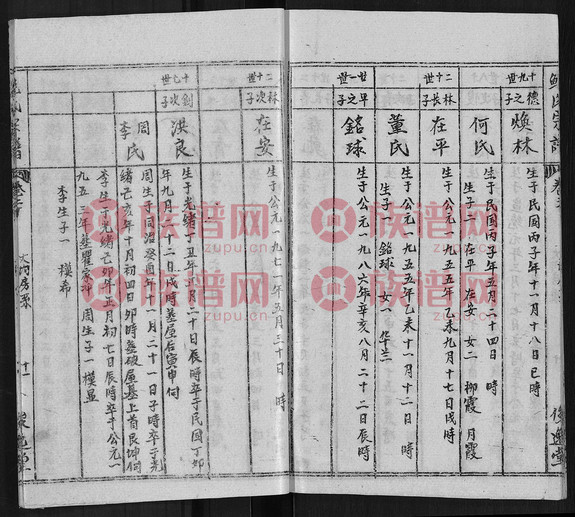 十九世
德之子
煥林
生于民国丙子年十一月十八日巳時
何氏
生于民国丙子年五月二十四日 時
生子二 在平 在安 女二 柳霞 月霞
二十世
林長子
在平
生于公元一九五五年乙未九月十七日戌時
董氏
生于公元一九五五年乙未十一月十二日 時
生子一 銘球 女一 华兰
廿一世
平之子
銘球
生于公元一九八六年 八月二十二日辰時
二十世
林次子
在安
生于公元一九七一年五月三十日 時
十七世
釗次子
洪良
生于光緒丁丑年正月二十日辰時卒于民国丁卯
年九月二十二日戌時墓屋后寅申向
周氏
周生于同治癸酉年十一月二十一日子時卒于光
緒己亥年十月初四日卯時墓破屋基上首艮坤向
李氏
李生于光緒己卯年正月初七日辰時卒于公元一
九五三年 周生子一 模显
李生子一 模希
族谱网
www.zupu.cn
族谱网
www.zupu.cn